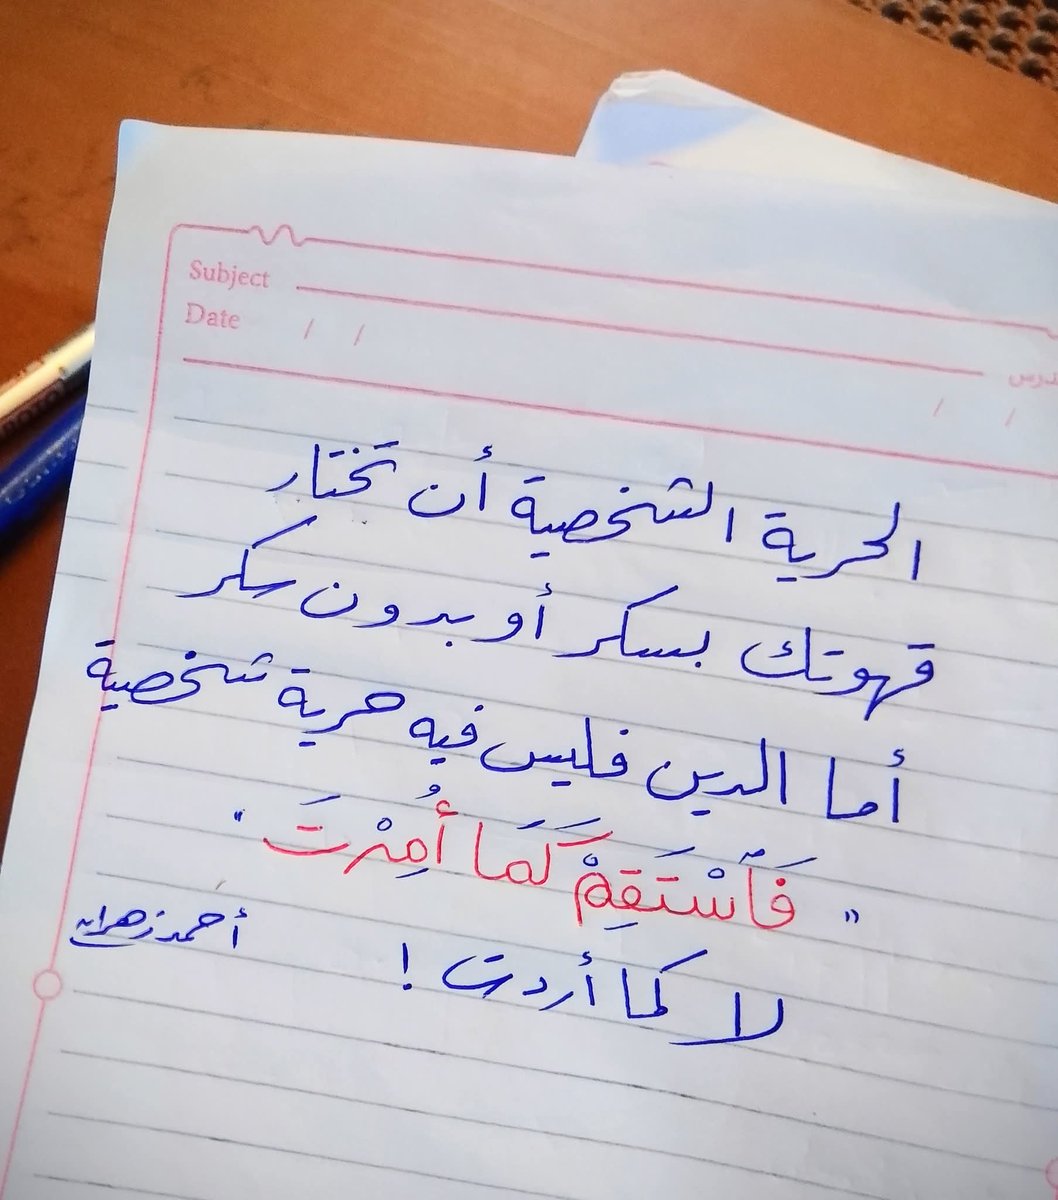 Subject
Date / /
درس
/ /
الحرية الشخصية أن تختار
قهوتك بسكر أو بدون سكر
أما الدين فليس فيه حرية شخصية
" فَٱسْتَقِمْ كَمَا أُمِرْتَ "
لا كما أردت !
أحمد زهران